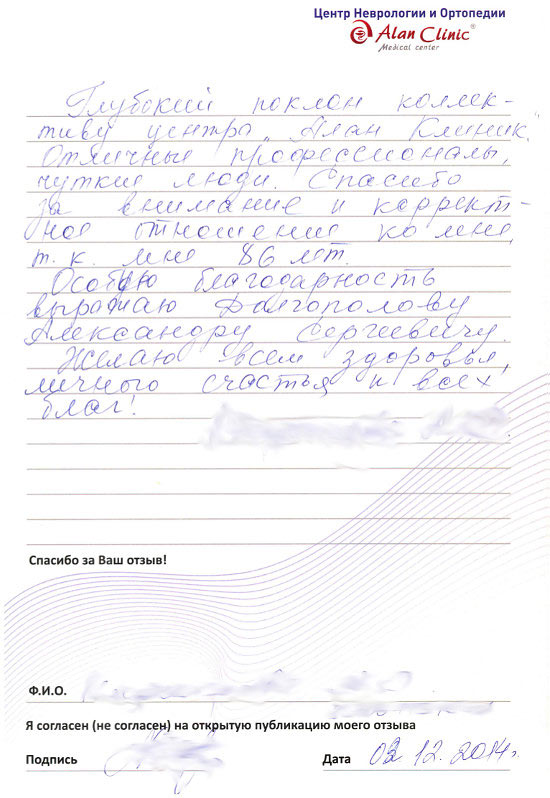 Центр Неврологии и Ортопедии
Alan Clinic®
Medical center
Глубокий поклон коллек-
тиву центра „Алан Клиник“.
Отличные профессионалы,
чуткие люди. Спасибо
за внимание и коррект-
ное отношение ко мне,
т. к. мне 86 лет.
Особую благодарность
выражаю Долгополову
Александру Сергеевичу.
Желаю всем здоровья,
личного счастья и всех
благ!
Спасибо за Ваш отзыв!
Ф.И.О.
Я согласен (не согласен) на открытую публикацию моего отзыва
Подпись Дата 02.12.2014г.